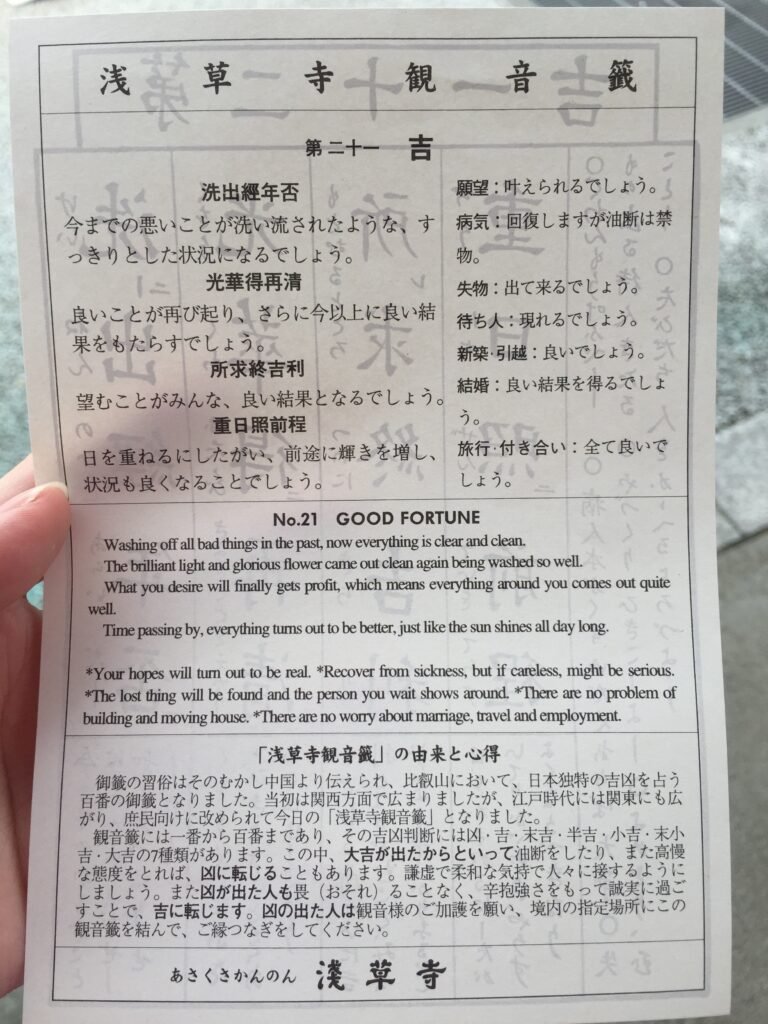 浅草寺観音籤
第二十一 吉
洗出經年否
今までの悪いことが洗い流されたような、す
っきりとした状況になるでしょう。
光華得再清
良いことが再び起り、さらに今以上に良い結
果をもたらすでしょう。
所求終吉利
望むことがみんな、良い結果となるでしょう。
重日照前程
日を重ねるにしたがい、前途に輝きを増し、
状況も良くなることでしょう。
願望：叶えられるでしょう。
病気：回復しますが油断は禁
物。
失物：出て来るでしょう。
待ち人：現れるでしょう。
新築·引越：良いでしょう。
結婚：良い結果を得るでしょ
う。
旅行·付き合い：全て良いで
しょう。
No.21 GOOD FORTUNE
Washing off all bad things in the past, now everything is clear and clean.
The brilliant light and glorious flower came out clean again being washed so well.
What you desire will finally gets profit, which means everything around you comes out quite
well.
Time passing by, everything turns out to be better, just like the sun shines all day long.
*Your hopes will turn out to be real. *Recover from sickness, but if careless, might be serious.
*The lost thing will be found and the person you wait shows around. *There are no problem of
building and moving house. *There are no worry about marriage, travel and employment.
「浅草寺観音籤」の由来と心得
御籤の習俗はそのむかし中国より伝えられ、比叡山において、日本独特の吉凶を占う
百番の御籤となりました。当初は関西方面で広まりましたが、江戸時代には関東にも広
がり、庶民向けに改められて今日の「浅草寺観音籤」となりました。
観音籤には一番から百番まであり、その吉凶判断には凶·吉·末吉·半吉·小吉·末小
吉·大吉の7種類があります。この中、大吉が出たからといって油断をしたり、また高慢
な態度をとれば、凶に転じることもあります。謙虚で柔和な気持で人々に接するように
しましょう。また凶が出た人も畏（おそれ）ることなく、辛抱強さをもって誠実に過ご
すことで、吉に転じます。凶の出た人は観音様のご加護を願い、境内の指定場所にこの
観音籤を結んで、ご縁つなぎをしてください。
あさくさかんのん 淺草寺